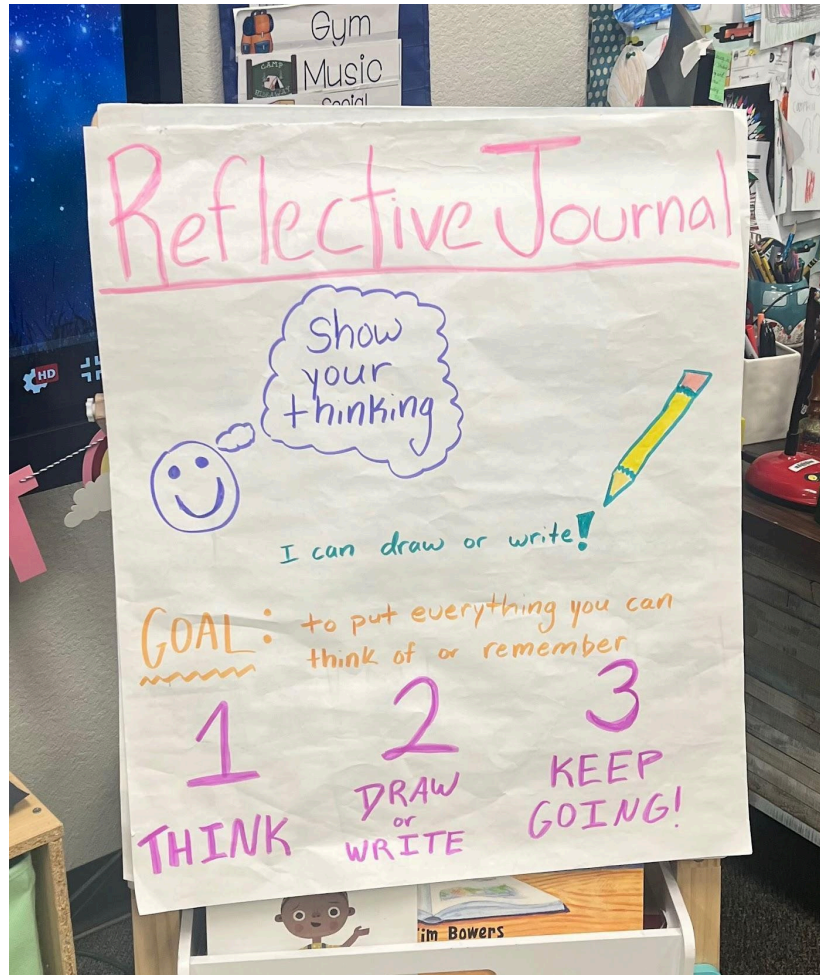 Gym
CAMP
Music
Social
Reflective Journal
HD
Show
your
thinking
I can draw or write!
GOAL: to put everything you can
think of or remember
1 2 3
THINK
DRAW
or
WRITE
KEEP
GOING!
im Bowers